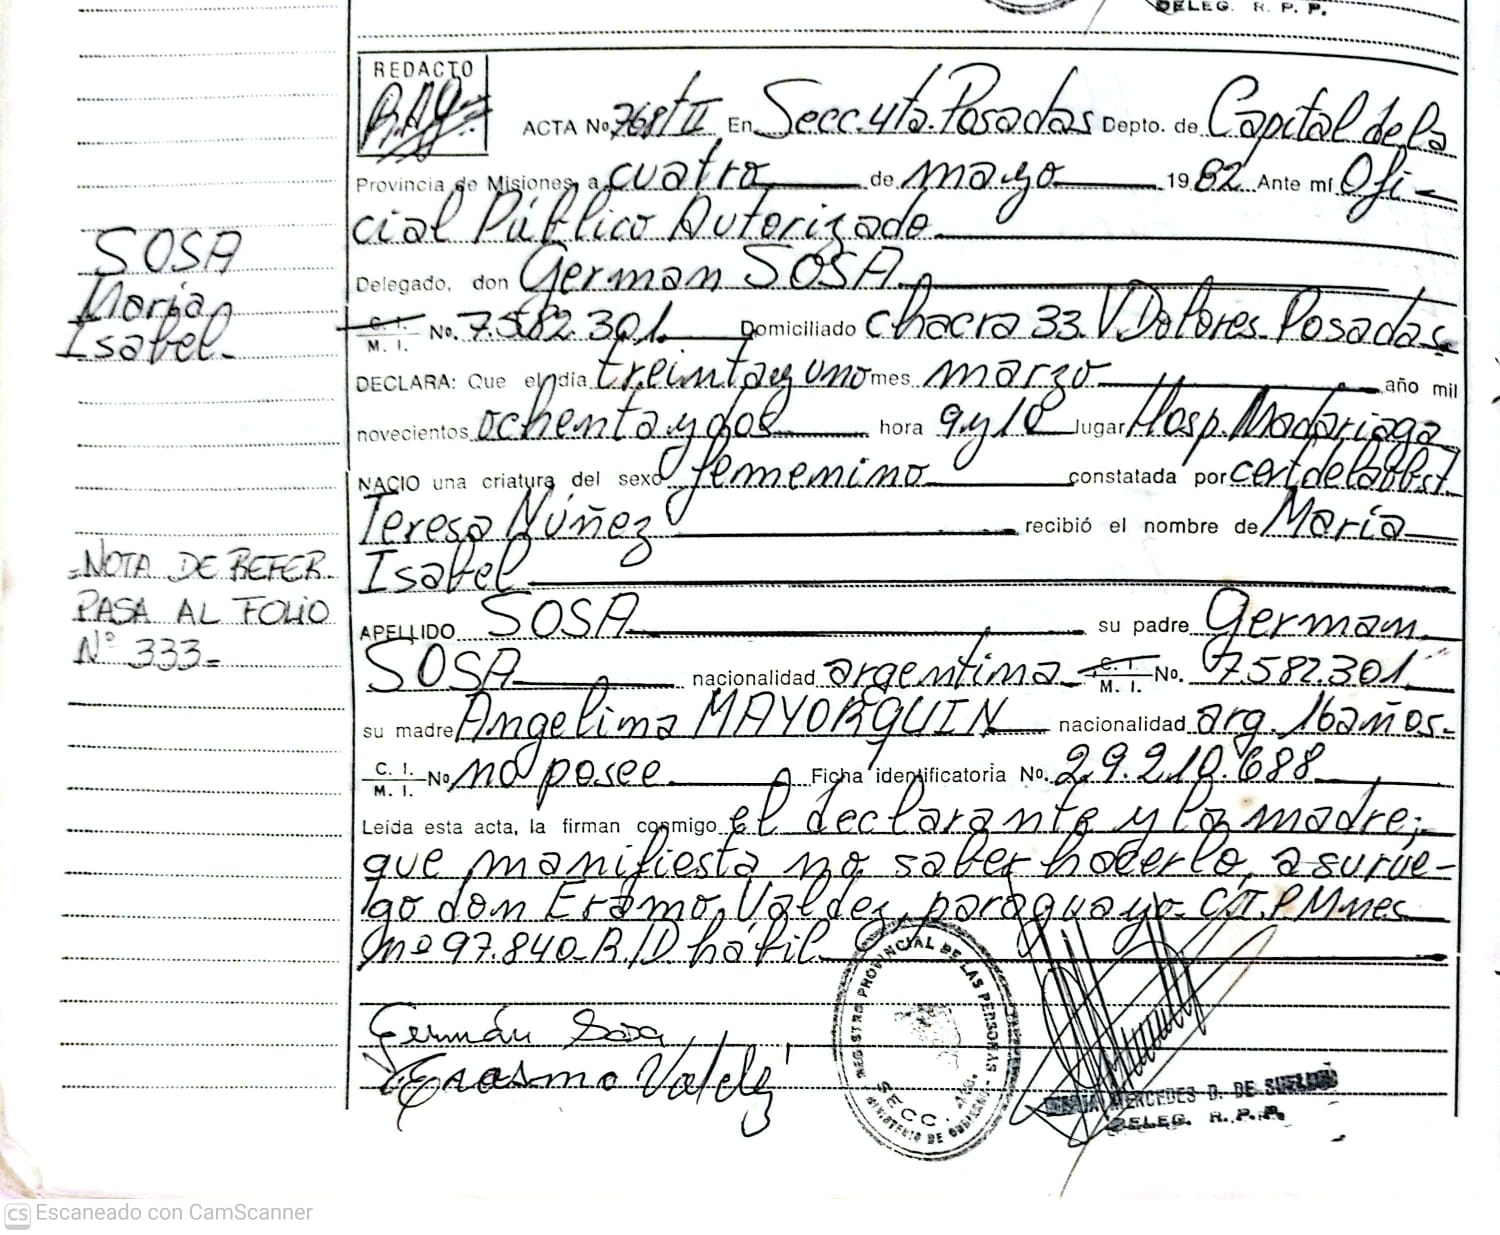 DELEG. R. P. P.
REDACTO
ACTA No 768 t II En Secc. 4ta. Posadas Depto. de Capital de la
Provincia de Misiones, a cuatro de mayo 1982 Ante mí Ofi-
cial Público Autorizado
Delegado, don German SOSA
C. I. M. I. No. 7.582.301 Domiciliado chacra 33. V Dolores. Posadas
DECLARA: Que el día treinta y uno mes marzo año mil
novecientos ochenta y dos hora 9 y 10 lugar Hosp. Madariaga
NACIO una criatura del sexo femenino constatada por cert de la obst.
Teresa Núñez recibió el nombre de María
Isabel
APELLIDO SOSA su padre German
SOSA nacionalidad argentina C. I. M. I. No. 7.582.301
su madre Angelina MAYORQUIN nacionalidad arg. 16 años.
C. I. M. I. No no posee Ficha identificatoria No. 29.210.688
Leída esta acta, la firman conmigo el declarante y la madre;
que manifiesta no saber hacerlo, a su rue-
go don Erasmo Valdez, paraguayo C.I.P. Mnes
nº 97.840. R/D. hábil
Germán Sosa
Erasmo Valdez
SOSA
María
Isabel.
=NOTA DE REFER.
PASA AL FOLIO
Nº 333=
REGISTRO PROVINCIAL DE LAS PERSONAS
SECC.
MINISTERIO DE GOBIERNO
MERCEDES D. DE
DELEG. R. P. P.
CS Escaneado con CamScanner